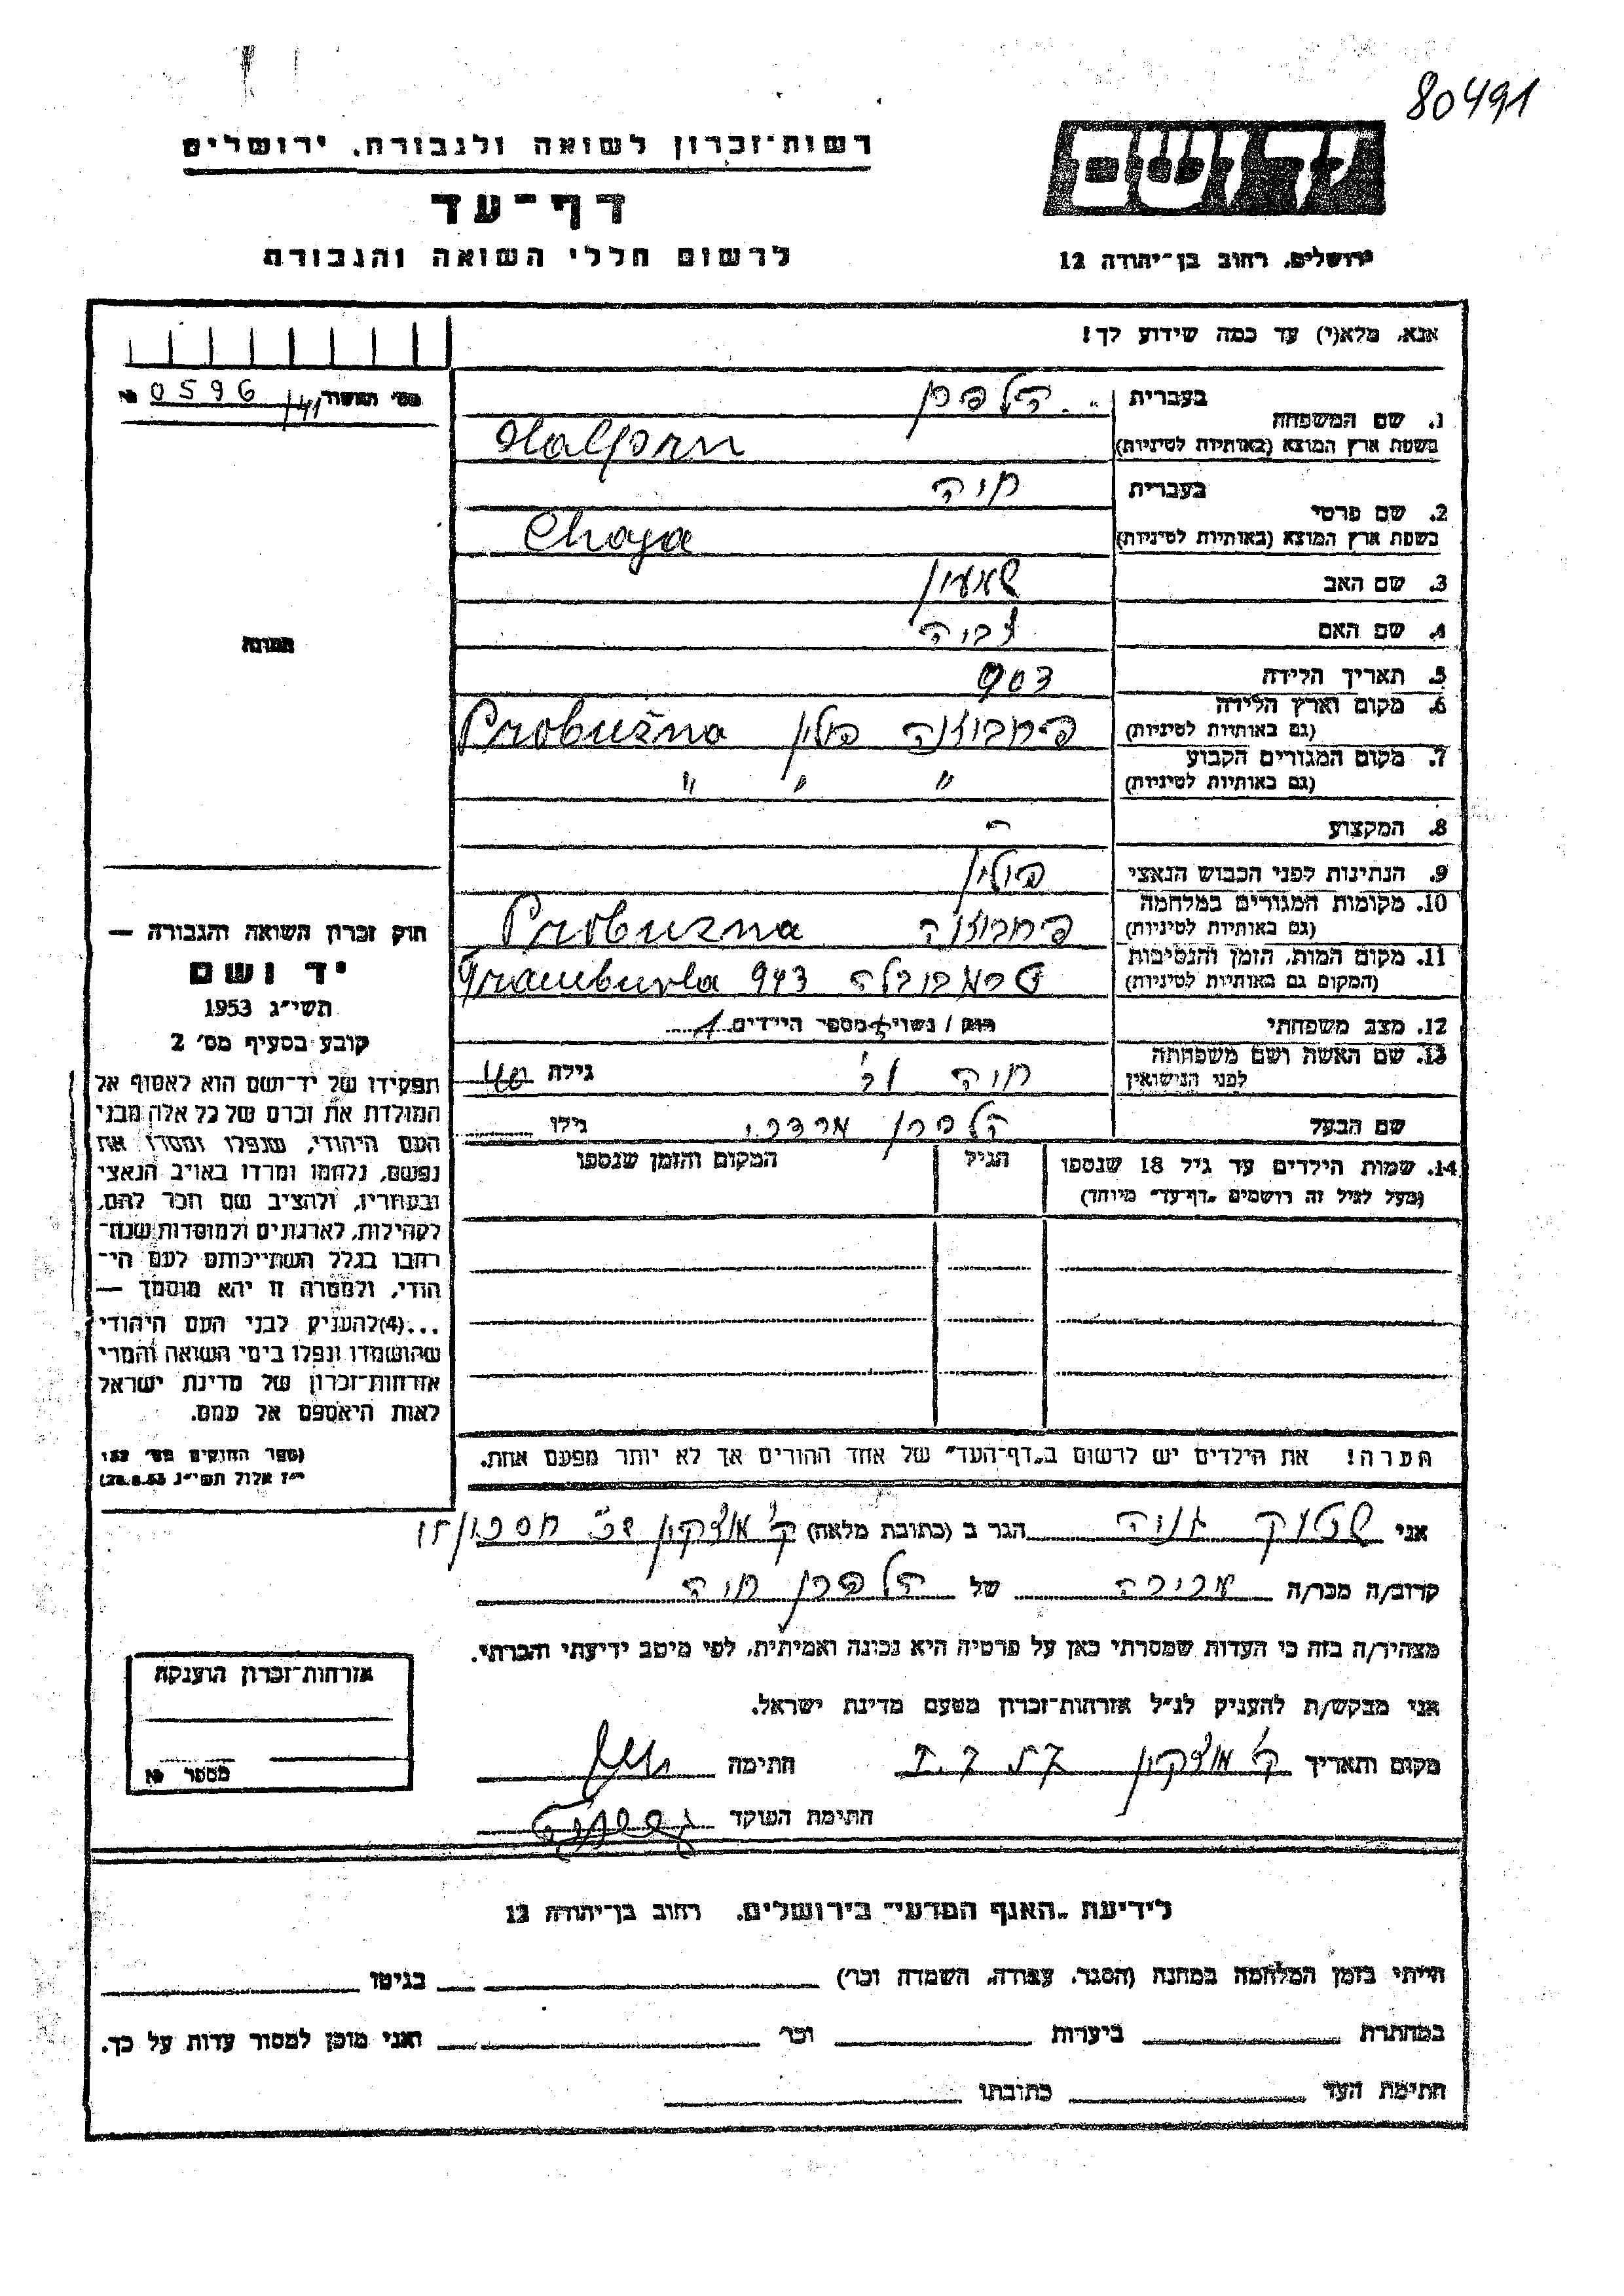 80491
רשות־זכרון לשואה ולגבורה, ירושלים
דף־עד
לרשום חללי השואה והגבורה
יד ושם
ירושלים, רחוב בן־יהודה 12
אנא, מלא(י) עד כמה שידוע לך!
מס׳ תמשור 0596/41 №
1. שם המשפחה
בעברית הלפרן
בשפת ארץ המוצא (באותיות לטיניות) Halpern
2. שם פרטי
בעברית חיה
בשפת ארץ המוצא (באותיות לטיניות) Chaya
3. שם האב שמעון
4. שם האם
5. תאריך הלידה 903
6. מקום וארץ הלידה
(גם באותיות לטיניות) פרבוזנה פולין Probužna
7. מקום המגורים הקבוע
(גם באותיות לטיניות) " " "
8. המקצוע
9. הנתינות לפני הכבוש הנאצי פולין
10. מקומות המגורים במלחמה
(גם באותיות לטיניות) פרבוזנה Probuzna
11. מקום המות, הזמן והנסיבות
(המקום גם באותיות לטיניות) טרמבובלה 943 Trambuvla
12. מצב משפחתי רווק / נשוי + מספר הילדים 1
13. שם האשה ושם משפחתה
לפני הנישואין חיה גילה 40
שם הבעל הלפרן מרדכי גילו
14. שמות הילדים עד גיל 18 שנספו
(מעל לגיל זה רושמים „דף־עד" מיוחד)
הגיל
המקום והזמן שנספו
הערה! את הילדים יש לרשום ב„דף־העד" של אחד ההורים אך לא יותר מפעם אחת.
תמונה
חוק זכרון השואה והגבורה —
יד ושם
תשי״ג 1953
קובע בסעיף מס׳ 2
תפקידו של יד־ושם הוא לאסוף אל
המולדת את זכרם של כל אלה מבני
העם היהודי, שנפלו ומסרו את
נפשם, נלחמו ומרדו באויב הנאצי
ובעוזריו, ולהציב שם וזכר להם,
לקהילות, לארגונים ולמוסדות שנח־
רבו בגלל השתייכותם לעם הי־
הודי, ולמטרה זו יהא מוסמך —
...(4) להעניק לבני העם היהודי
שהושמדו ונפלו בימי השואה והמרי
אזרחות־זכרון של מדינת ישראל
לאות היאספם אל עמם.
(ספר החוקים מס׳ 132
י״ז אלול תשי״ג 28.8.53)
אני שטוק הגר ב (כתובת מלאה) ק׳ מוצקין
קרוב/ה מכר/ה מכירה של הלפרן חיה
מצהיר/ה בזה כי העדות שמסרתי כאן על פרטיה היא נכונה ואמיתית, לפי מיטב ידיעתי והכרתי.
אני מבקש/ת להעניק לנ״ל אזרחות־זכרון מטעם מדינת ישראל.
מקום ותאריך ק׳ מוצקין חתימה
חתימת הפוקד
אזרחות־זכרון הוענקה
מספר №
לידיעת „האגף המדעי" בירושלים, רחוב בן־יהודה 12
הייתי בזמן המלחמה במחנה (הסגר, עבודה, השמדה וכו׳) בגיטו
במחתרת ביערות וכו׳ ואני מוכן למסור עדות על כך.
חתימת העד כתובתו